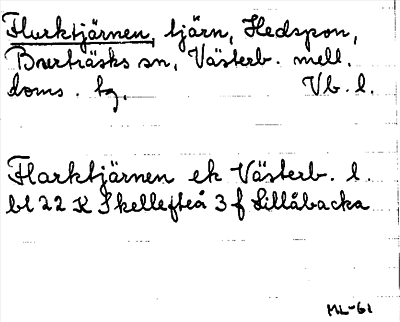 Flarktjärnen, tjärn, Hedspon,
Burträsks sn, Västerb. mell.
doms. tg. Vb. l.
Flarktjärnen ek Västerb. l.
bl 22 K Skellefteå 3 f Lillåbacka
ML-61